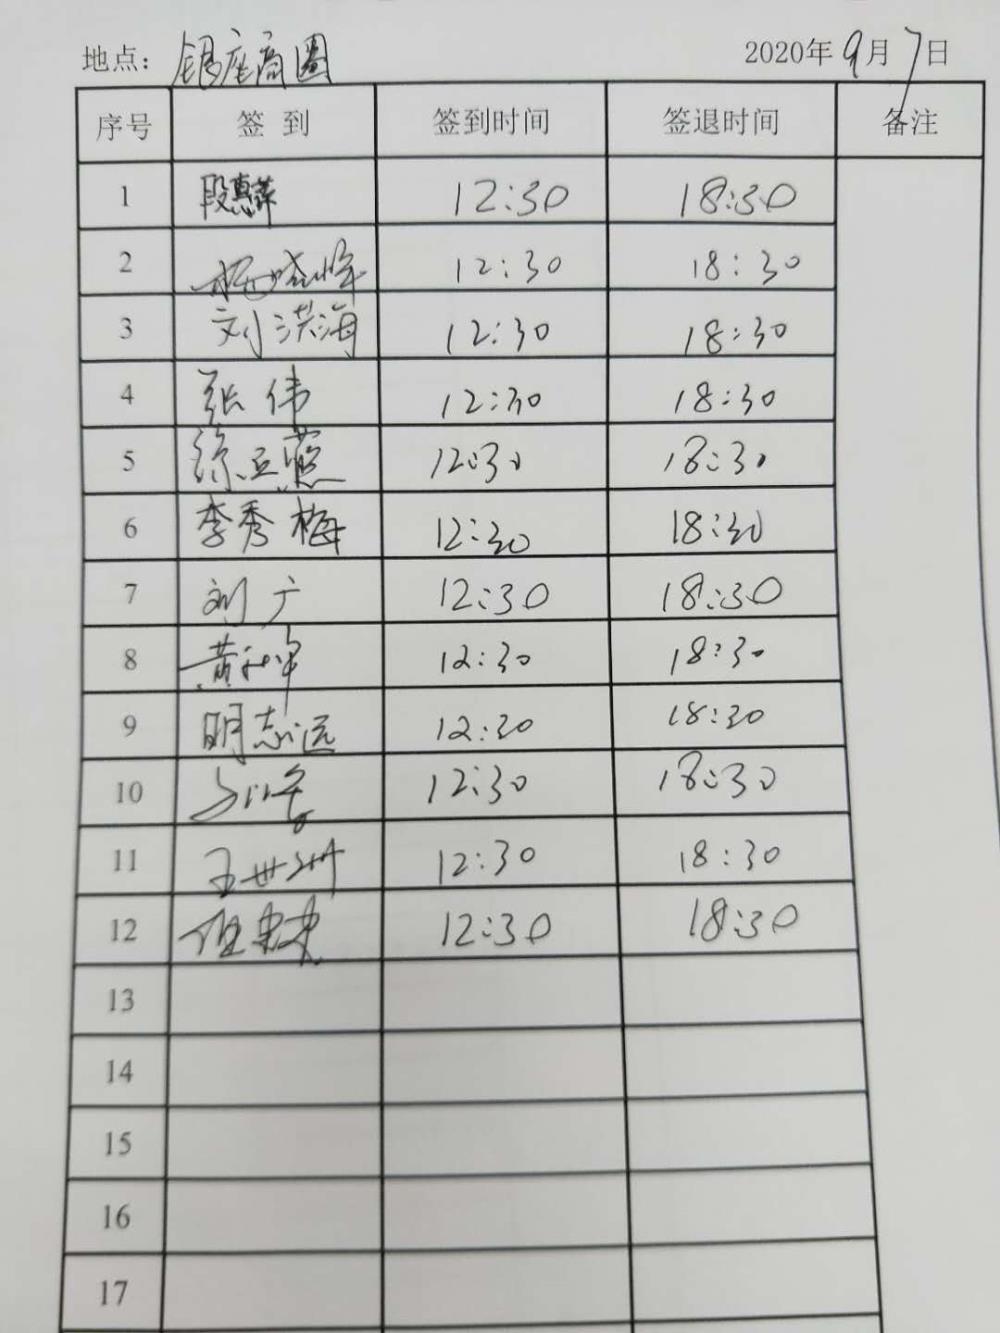 地点：银座商圈 2020年9月7日
序号 签到 签到时间 签退时间 备注
1 段惠萍 12:30 18:30
2 杨晓峰 12:30 18:30
3 刘洪海 12:30 18:30
4 张伟 12:30 18:30
5 12:30 18:30
6 李秀梅 12:30 18:30
7 刘广 12:30 18:30
8 12:30 18:30
9 明志远 12:30 18:30
10 12:30 18:30
11 王世洲 12:30 18:30
12 12:30 18:30
13
14
15
16
17